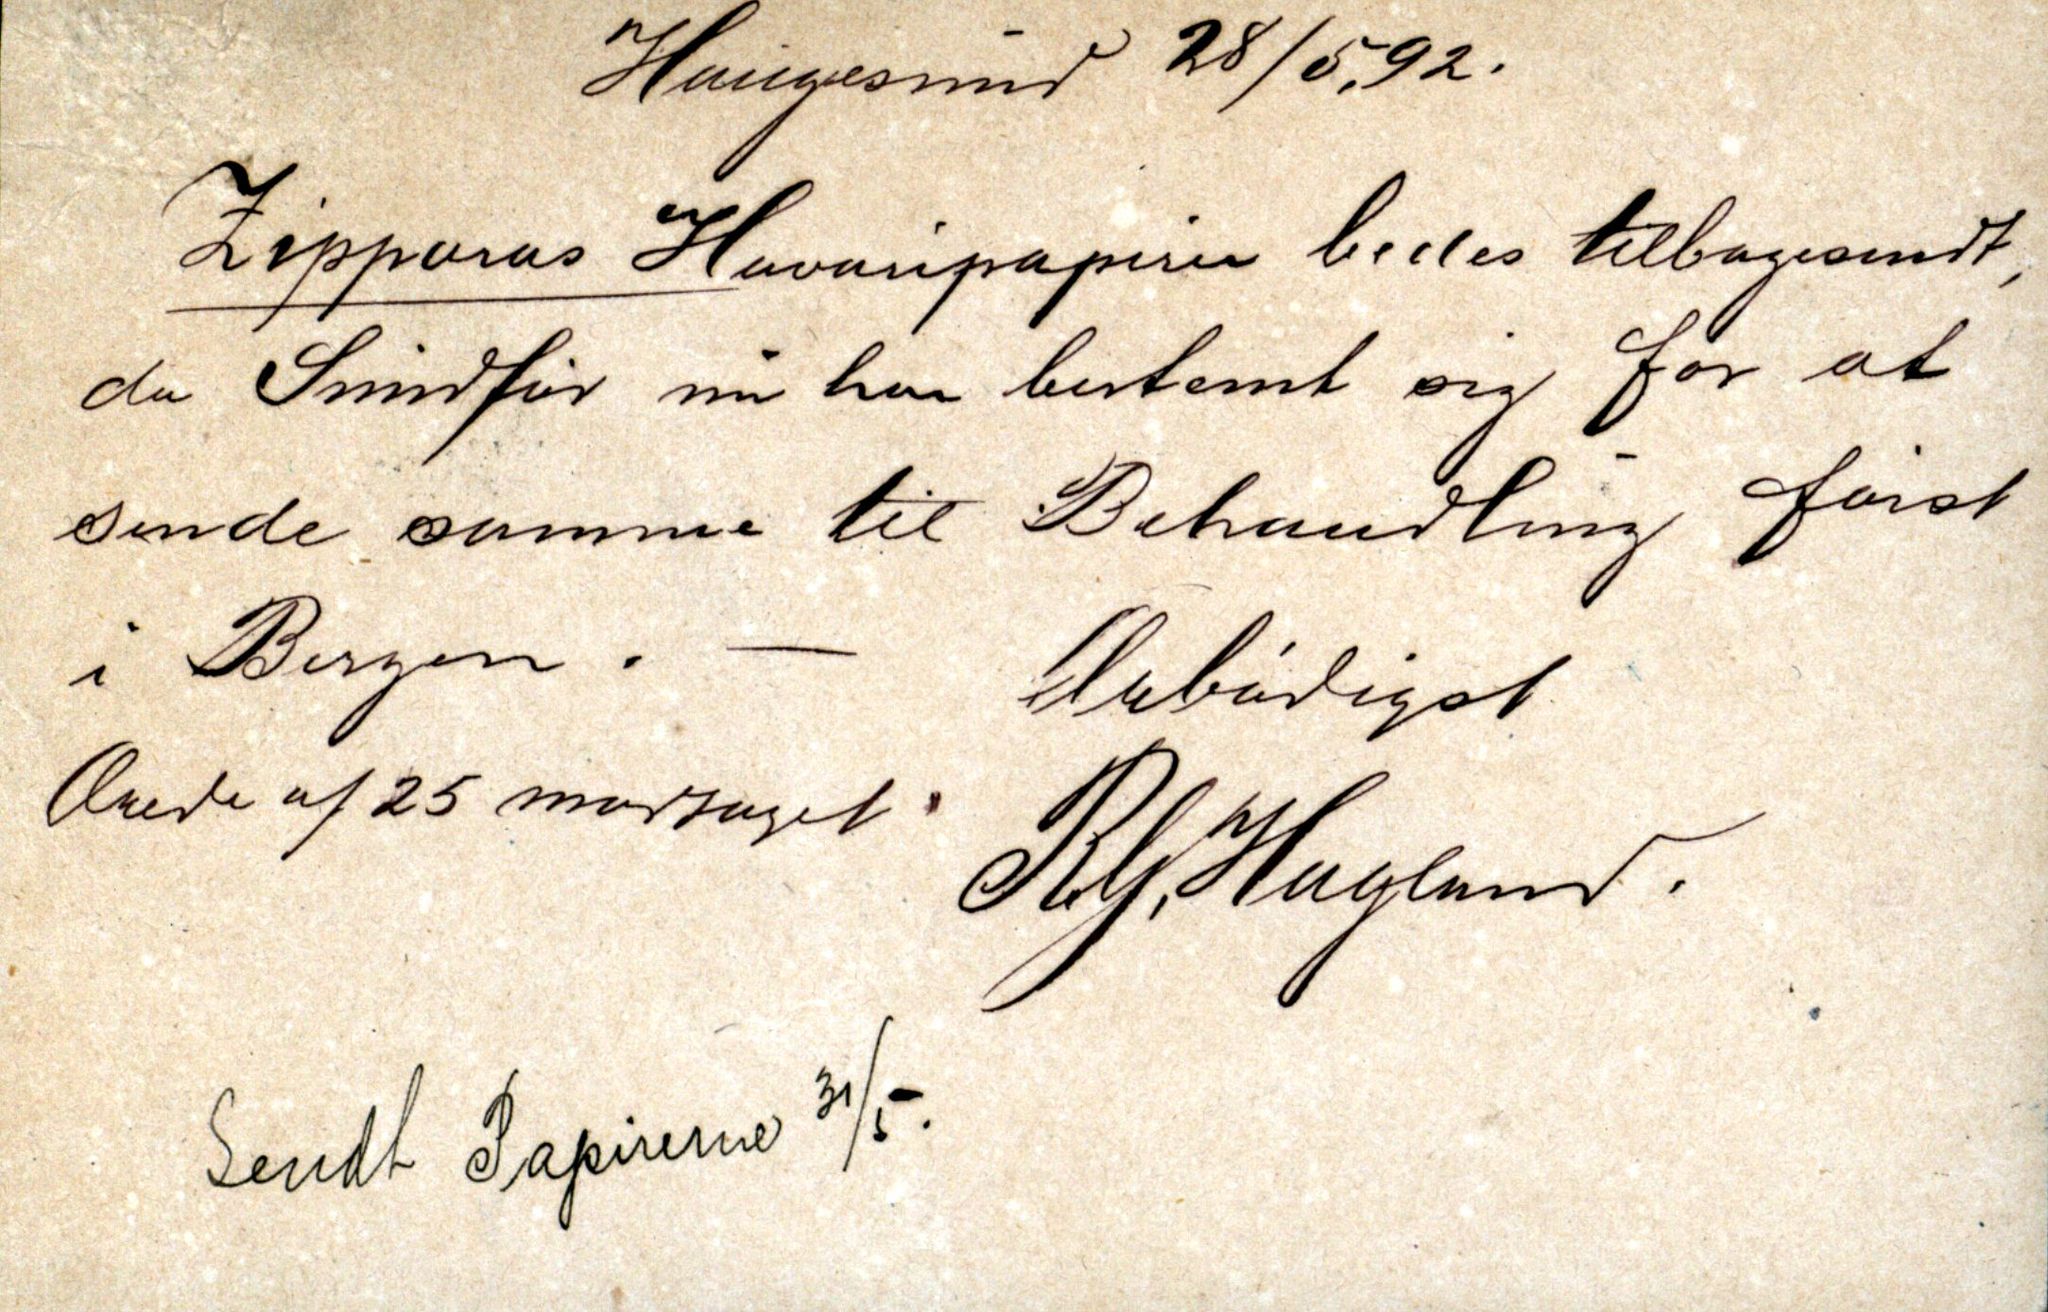 Haugesund 28/5.92.
Zipporas Havaripapirer bedes tilbagesendt,
da Sundfør nu har bestemt sig for at
sende samme til Behandling først
i Bergen. —
Ærbødigst
Ærede af 25 modtaget.
R.G. Hagland.
Sendt Papirerne 31/5.